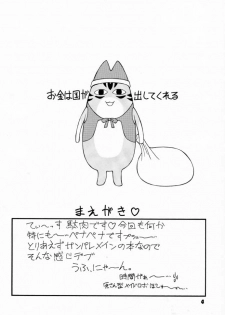 お金は国が出してくれる
まえがき♡
てぃーっす 駄肉です♡今回も何か
特にも〜ペナペナですっちゅー
とりあえずサンパレメインの本なので
そんな感じデブ
うふにゃーん。
時間がぁー
4